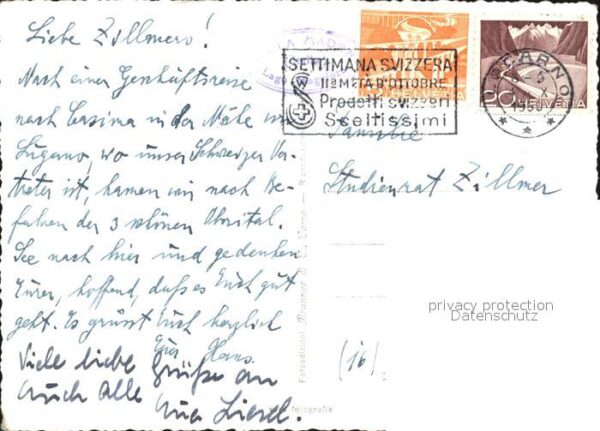 Liebe Zillmers!
Nach einer Geschäftsreise
nach Casima in der Nähe von
Lugano, wo unser Schweizer Ver-
treter ist, kamen wir nach Be-
fahren der 3 schönen Oberital.
See nach hier und gedenken
Eurer, hoffend, daß es Euch gut
geht. Es grüsst Euch herzlich
Euer Hans.
Viele liebe Grüße an
Euch alle Eure Liesel.
SETTIMANA SVIZZERA
IIa META D'OTTOBRE
Prodotti svizzeri
Sceltissimi
HELVETIA
20 HELVETIA
1950
Familie
Studienrat Zillmer
privacy protection
Datenschutz
(16)
fotografia